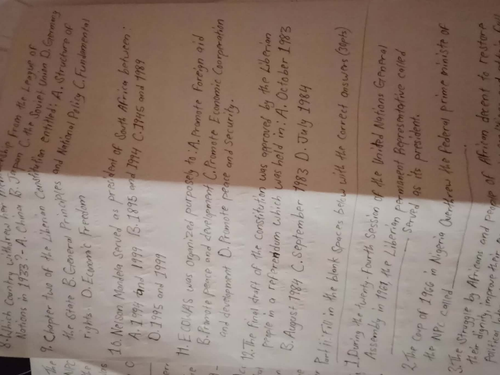 Which Country withdrew from the League of
Nations in 1933? A. China B. Japan C. the Soviet Union D. Germany
9. Chapter two of the Liberian Constitution entitled: A. Structure of
the State B. General Principles and National Policy C. Fundamental
rights D. Economic Freedom
10. Nelson Mandela served as president of South Africa between:
A. 1994 and 1999 B. 1895 and 1994 C. 1945 and 1989
D. 1945 and 1999
11. ECOWAS was organized purposely to: A. Promote Foreign aid
B. Promote peace and development C. Promote Economic Cooperation
and development D. Promote peace and security.
12. The final draft of the Constitution was approved by the Liberian
people in a referendum which was held in: A. October 1983
B. August 1984 C. September 1983 D. July 1984
Part II Fill in the blank Spaces below with the correct answers
1. During the twenty fourth Session of the United Nations General
Assembly in 1969, the Liberian permanent Representative called
Served as its president.
2. The Coup of 1966 in Nigeria Overthrew the Federal prime minister of
the NPC called
3. The struggle by Africans and people of African decent to restore
their dignity,